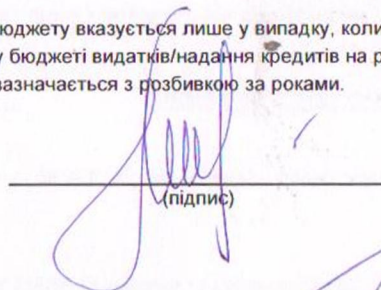 юджету вказується лише у випадку, коли
у бюджеті видатків/надання кредитів на р
зазначається з розбивкою за роками.
(підпис)